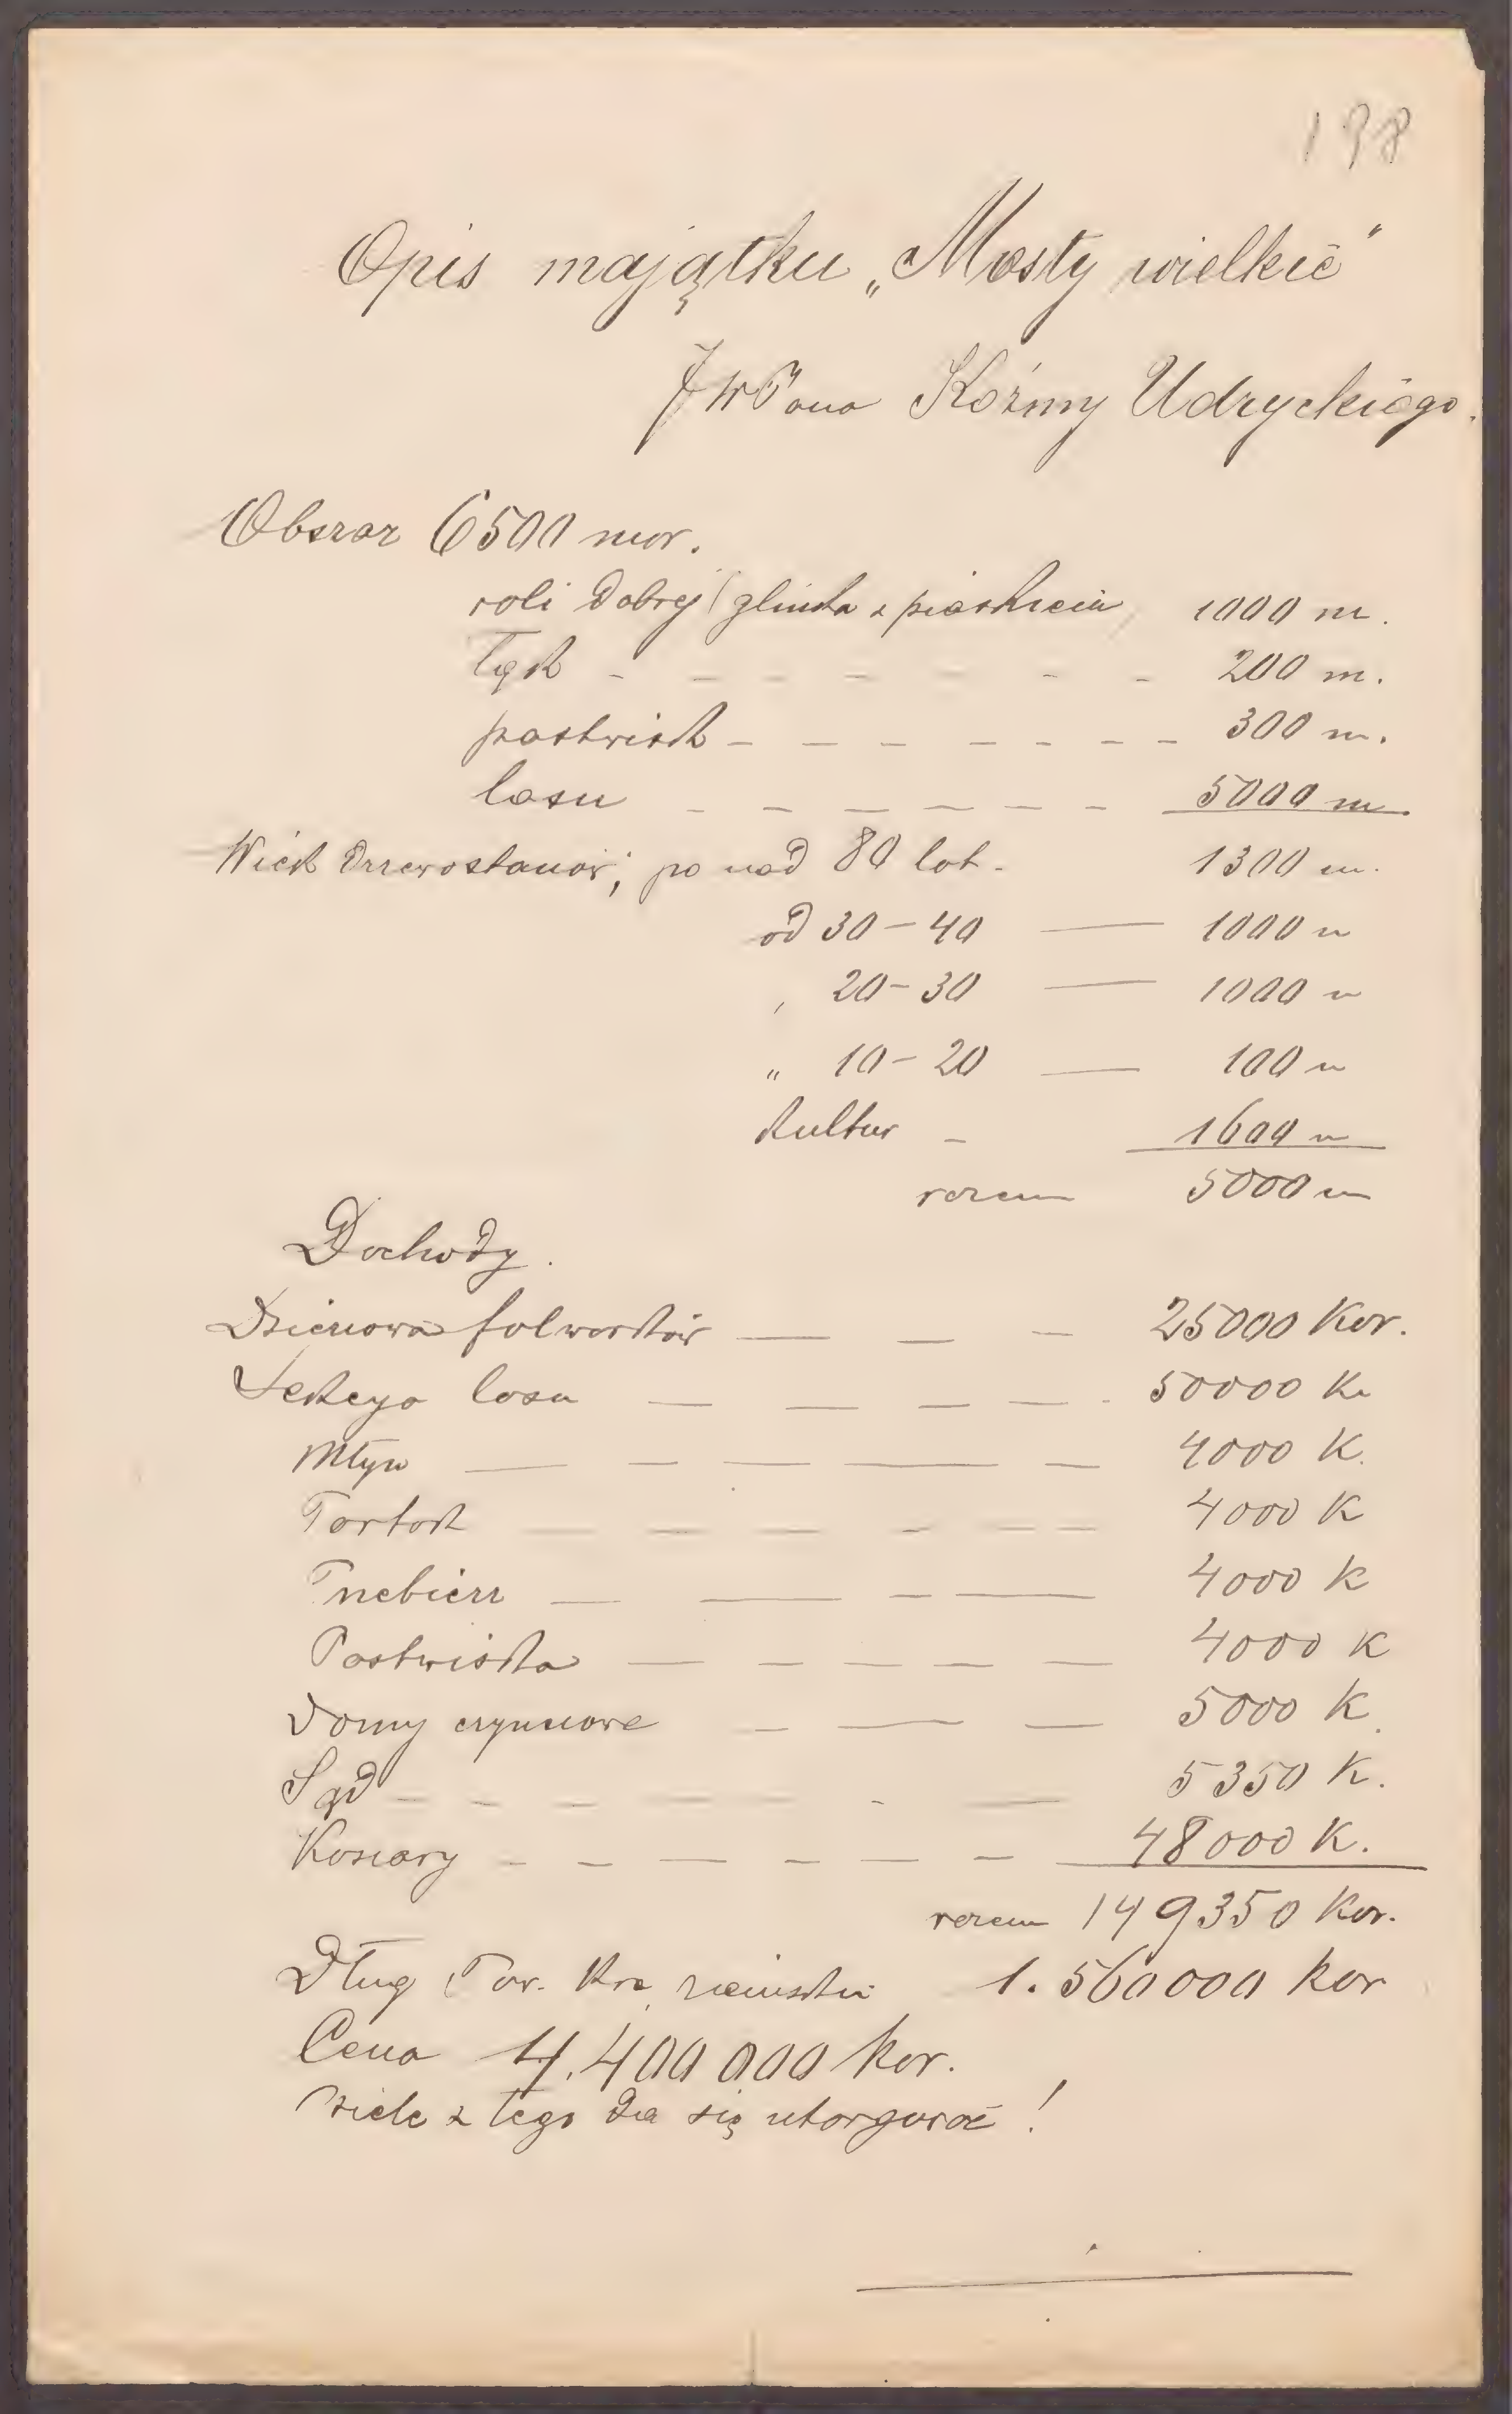 198
Opis majątku „Mosty wielkie"
JWPana Koźmy Udryckiego.
Obszar 6500 mor.
roli dobrej (glinka z piaskiem 1000 m.
łąk - - - - - - 200 m.
pastwisk - - - - - - - 300 m.
lasu - - - - - - 5000 m
Wiek drzewostanów; po nad 80 lat - 1300 m.
od 30-40 — 1000 m
„ 20-30 — 1000 m
„ 10-20 — 100 m
kultur - 1600 m
razem 5000 m
Dochody.
Dzierżawa folwarków — — - 25000 Kor.
Z etego lasu — — — — - 50000 K.
Młyn — — — — — 4000 K.
Tartak — — — — — — 4000 K
Trzebierz — — — — 4000 K
Pastwiska — — — — — — 4000 K
Domy czynszowe — — — 5000 K.
Sąd - - - - - - — 5350 K.
Koszary - - — - — - 48000 K.
razem 149350 Kor.
Dług Tow. kre. ziemskie 1.560000 kor
Cena 4.400000 kor.
wiele z tego da się utargować!